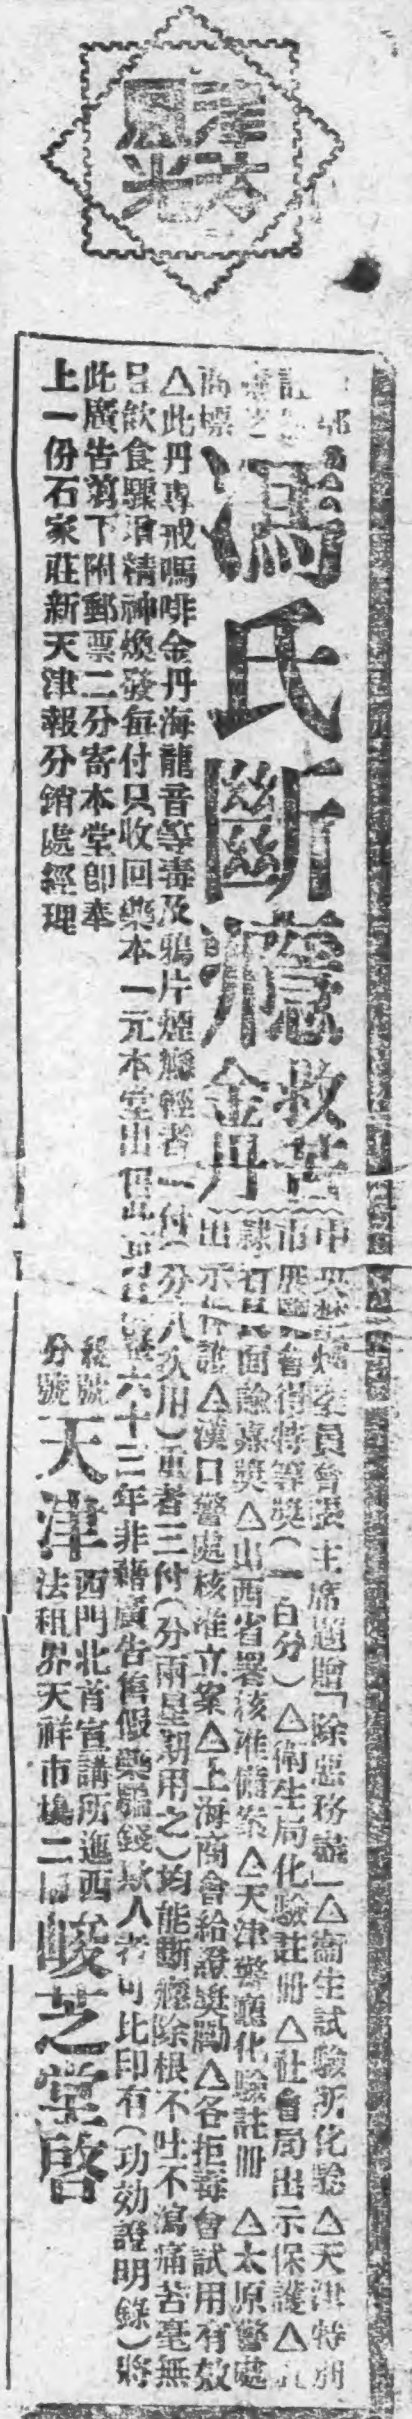 津大
風光
部
註
商標
馮氏斷癮救苦金丹
中央禁煙委員會張主席題贈「除惡務盡」△衞生試驗所化驗△天津特別
市展覽會得特等獎(一百分)△衞生局化驗註冊△社會局出示保護△
面諭嘉獎△山西省署核准備案△天津警廳化驗註冊△太原警處
出示保護△漢口警處核准立案△上海商會給證獎勵△各拒毒會試用有效
△此丹專戒嗎啡金丹海龍音等毒及鴉片煙癮輕者一付(分八次用)重者三付(分兩星期用之)均能斷癮除根不吐不瀉痛苦毫無
且飲食驟增精神煥發每付只收回藥本一元本堂出售此丹六十三年非藉廣告售假藥騙錢欺人者可比印有(功効證明錄)將
此廣告剪下附郵票二分寄本堂卽奉
上一份石家莊新天津報分銷處經理
總號
分號
天津
西門北首宣講所進西
法租界天祥市塲二樓
峻芝堂啓